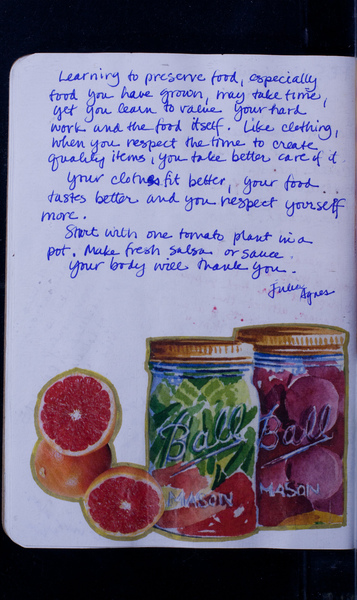 Learning to preserve food, especially
food you have grown, may take time,
yet you learn to value your hard
work and the food itself. Like clothing,
when you respect the time to create
quality items, you take better care of it.
Your clothes fit better, your food
tastes better and you respect yourself
more.
Start with one tomato plant in a
pot. Make fresh salsa or sauce.
Your body will thank you.
Agnes
Ball
MASON
Ball
MASON